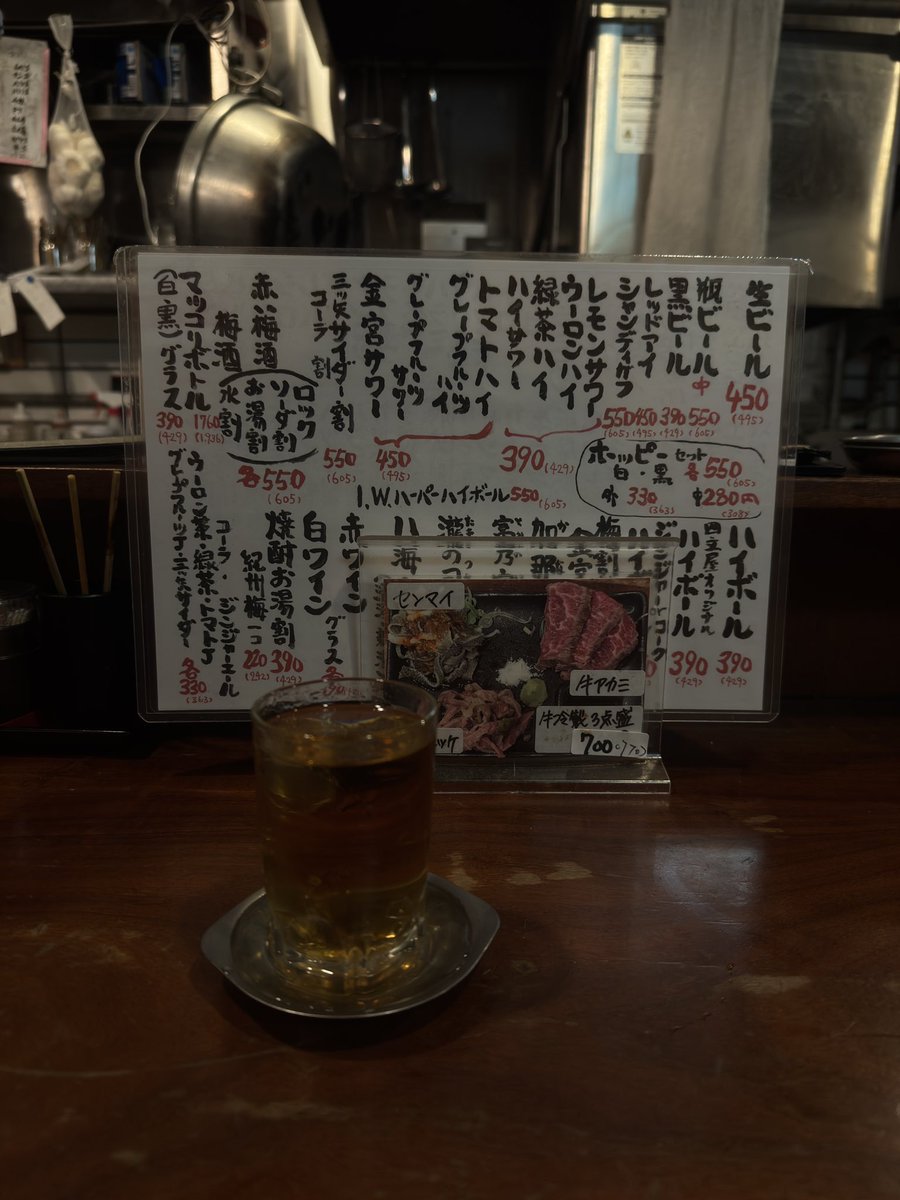 生ビール
450
(495)
瓶ビール
中
550
(605)
黒ビール
390
(429)
レッドアイ
450
(495)
シャンディガフ
550
(605)
レモンサワー
ウーロンハイ
緑茶ハイ
ハイサワー
390
(429)
トマトハイ
グレープフルーツハイ
グレープフルーツサワー
金宮サワー
450
(495)
三ツ矢サイダー割
コーラ割
550
(605)
赤い梅酒
梅酒
ロック
ソーダ割
お湯割
水割
各550
(605)
マッコリボトル
1760
(1936)
(白黒)グラス
390
(429)
ホッピーセット
白・黒
各550
(605)
外 330
(363)
280円
(308)
I.W.ハーパーハイボール550
(605)
ハイボール
390
(429)
オリジナル
ハイボール
390
(429)
ジンジャーorコーク
赤ワイン
白ワイン
グラス
焼酎お湯割
390
(429)
紀州梅一コ
220
コーラ・ジンジャーエール
ウーロン茶・緑茶・トマトJ
グレープフルーツJ・三ツ矢サイダー
各
330
(363)
センマイ
牛アカミ
牛冷製3点盛
700(770)